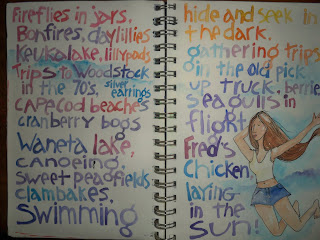 fireflies in jars,
Bonfires, daylillies
Keuka lake, lillypods
Trips to Woodstock
in the 70's, silver earrings
CAPE COD beaches
cranberry bogs
Waneta lake,
canoeing,
sweet peafields
clambakes,
Swimming
hide and seek in
the dark,
gathering trips
in the old pick
up truck, berries
Seagulls in
flight
Fred's
Chicken,
laying
in the
sun!